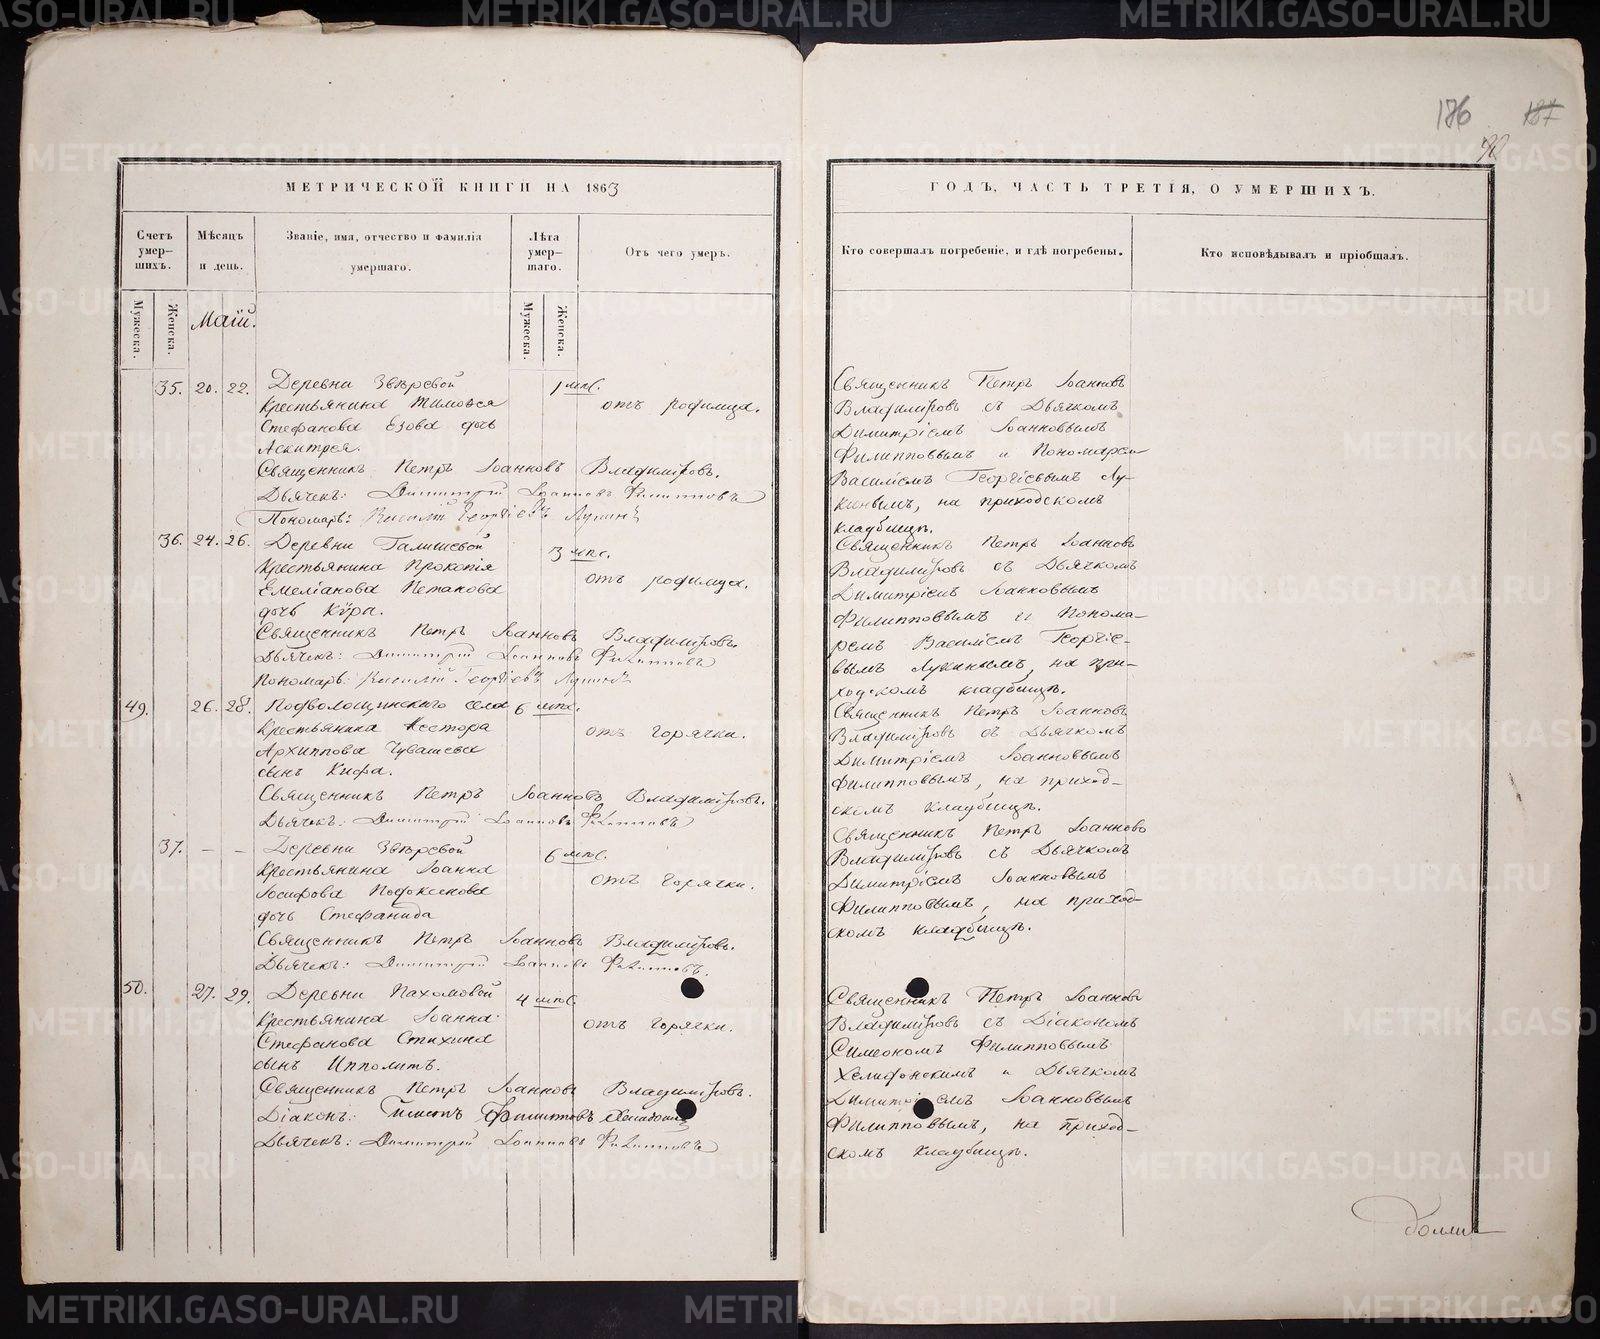 186 187
МЕТРИЧЕСКОЙ КНИГИ НА 1863
Счетъ умер-шихъ.
Мѣсяцъ и день.
Званіе, имя, отчество и фамилія умершаго.
Лѣта умер-шаго.
Отъ чего умеръ.
Мужеска. Женска.
Мужеска. Женска.
Май.
35. 20. 22. Деревни Звѣревой 1 мѣс.
Крестьянина Тимоѳея отъ родимца.
Стефанова Езова дочь
Священникъ Петръ Іоанновъ Владиміровъ.
Дьячекъ: Димитрій Іоанновъ Филипповъ
Пономарь: Василій Георгіевъ Лукинъ
36. 24. 26. Деревни Галишевой 3 мѣс.
Крестьянина Прокопія отъ родимца.
Емеліанова Петакова
дочь Кѵра.
Священникъ Петръ Іоанновъ Владиміровъ.
Дьячекъ: Димитрій Іоанновъ Филипповъ
Пономарь: Василій Георгіевъ Лукинъ
49. 26. 28. Подволошинскаго села 6 мѣс.
Крестьянина Нестора отъ горячки.
Архиппова Чувашева
сынъ Кифа.
Священникъ Петръ Іоанновъ Владиміровъ.
Дьячекъ: Димитрій Іоанновъ Филипповъ
37. – – Деревни Звѣревой 6 мѣс.
Крестьянина Іоанна отъ горячки.
Іосифова
дочь Стефанида
Священникъ Петръ Іоанновъ Владиміровъ.
Дьячекъ: Димитрій Іоанновъ Филипповъ.
50. 27. 29. Деревни Пахомовой 4 мѣс.
Крестьянина Іоанна отъ горячки.
Стефанова Стихина
сынъ Ипполитъ.
Священникъ Петръ Іоанновъ Владиміровъ.
Діаконъ: Филипповъ
Дьячекъ: Димитрій Іоанновъ Филипповъ
ГОДЪ, ЧАСТЬ ТРЕТІЯ, О УМЕРШИХЪ.
Кто совершалъ погребеніе, и гдѣ погребены.
Кто исповѣдывалъ и пріобщалъ.
Священникъ Петръ Іоанновъ
Владиміровъ съ Дьячкомъ
Димитріемъ Іоанновымъ
Филипповымъ и Пономаремъ
Василіемъ Георгіевымъ Лу-
кинымъ, на приходскомъ
кладбищѣ.
Священникъ Петръ Іоанновъ
Владиміровъ съ Дьячкомъ
Димитріемъ Іоанновымъ
Филипповымъ и Понома-
ремъ Василіемъ Георгіе-
вымъ Лукинымъ, на при-
ходскомъ кладбищѣ.
Священникъ Петръ Іоанновъ
Владиміровъ съ Дьячкомъ
Димитріемъ Іоанновымъ
Филипповымъ, на приход-
скомъ кладбищѣ.
Священникъ Петръ Іоанновъ
Владиміровъ съ Дьячкомъ
Димитріемъ Іоанновымъ
Филипповымъ, на приход-
скомъ кладбищѣ.
Священникъ Петръ Іоанновъ
Владиміровъ съ Діакономъ
Симеономъ Филипповымъ
и Дьячкомъ
Димитріемъ Іоанновымъ
Филипповымъ, на приход-
скомъ кладбищѣ.
METRIKI.GASO-URAL.RU